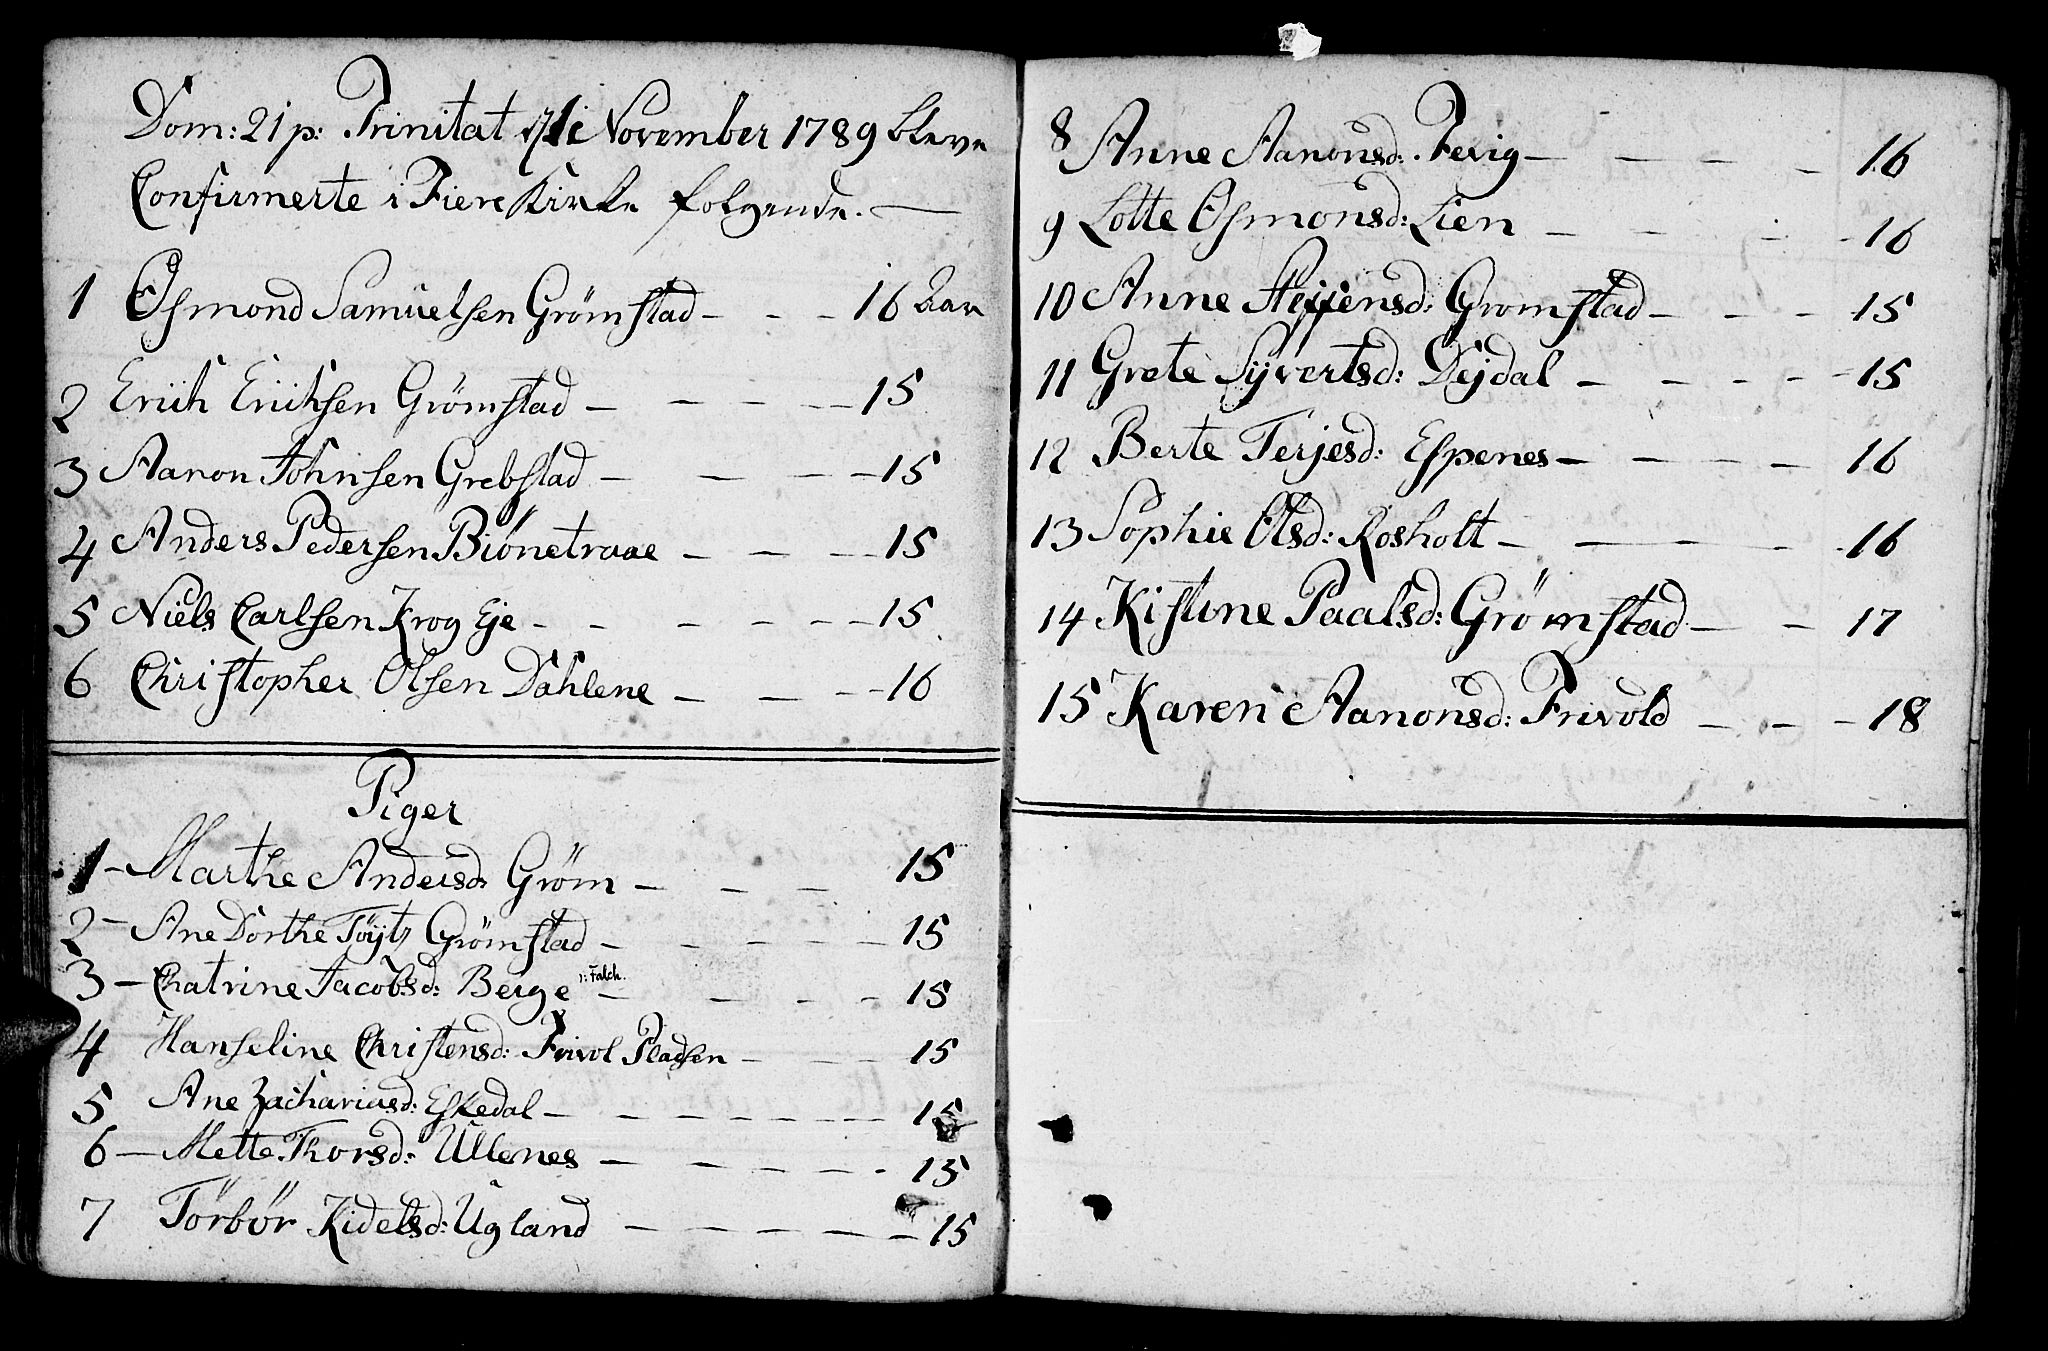 Dom: 21 p: Trinitat d 1te November 1789 bleve
Confirmerte i Fiere Kirke folgende. —
1 Osmond Samuelsen Grømstad - - - 16 Aar
2 Erich Erichsen Grømstad - - - - 15
3 Aanon Johnsen Grebstad - - - - 15
4 Anders Pedersen Biønetraae - - - - 15
5 Niels Carlsen Krog Eje - - - - - 15
6 Christopher Olsen Dahlene - - - - 16
Piger
1 - Marthe Andersd: Grøm - - - 15
2 - Ane Dorthe Tøyt Grømstad - - - - - 15
3 - Chatrine Jacobsd: Berge ɔ: Falch. - - - - 15
4 Hanseline Christensd: Frivol Pladsen - - - 15
5 Ane Zachariasd: Eskedal - - - - - - 15
6 - Mette Thorsd: Ullenes - - - - - 15
7 Torbør Kidelsd: Ugland - - - - - 15
8 Anne Aanonsd: Fevig - - - - 16
9 Lotte Osmonsd: Lien - - - - - 16
10 Anne Steffensd: Gromstad - - - 15
11 Grete Syvertsd: Dejdal - - - - - 15
12 Berte Terjesd: Espenes - - - - 16
13 Sophie Olsd: Rosholt - - - - - 16
14 Kistine Paalsd: Grømstad - - 17
15 Karen Aanonsd: Frivold - - - 18